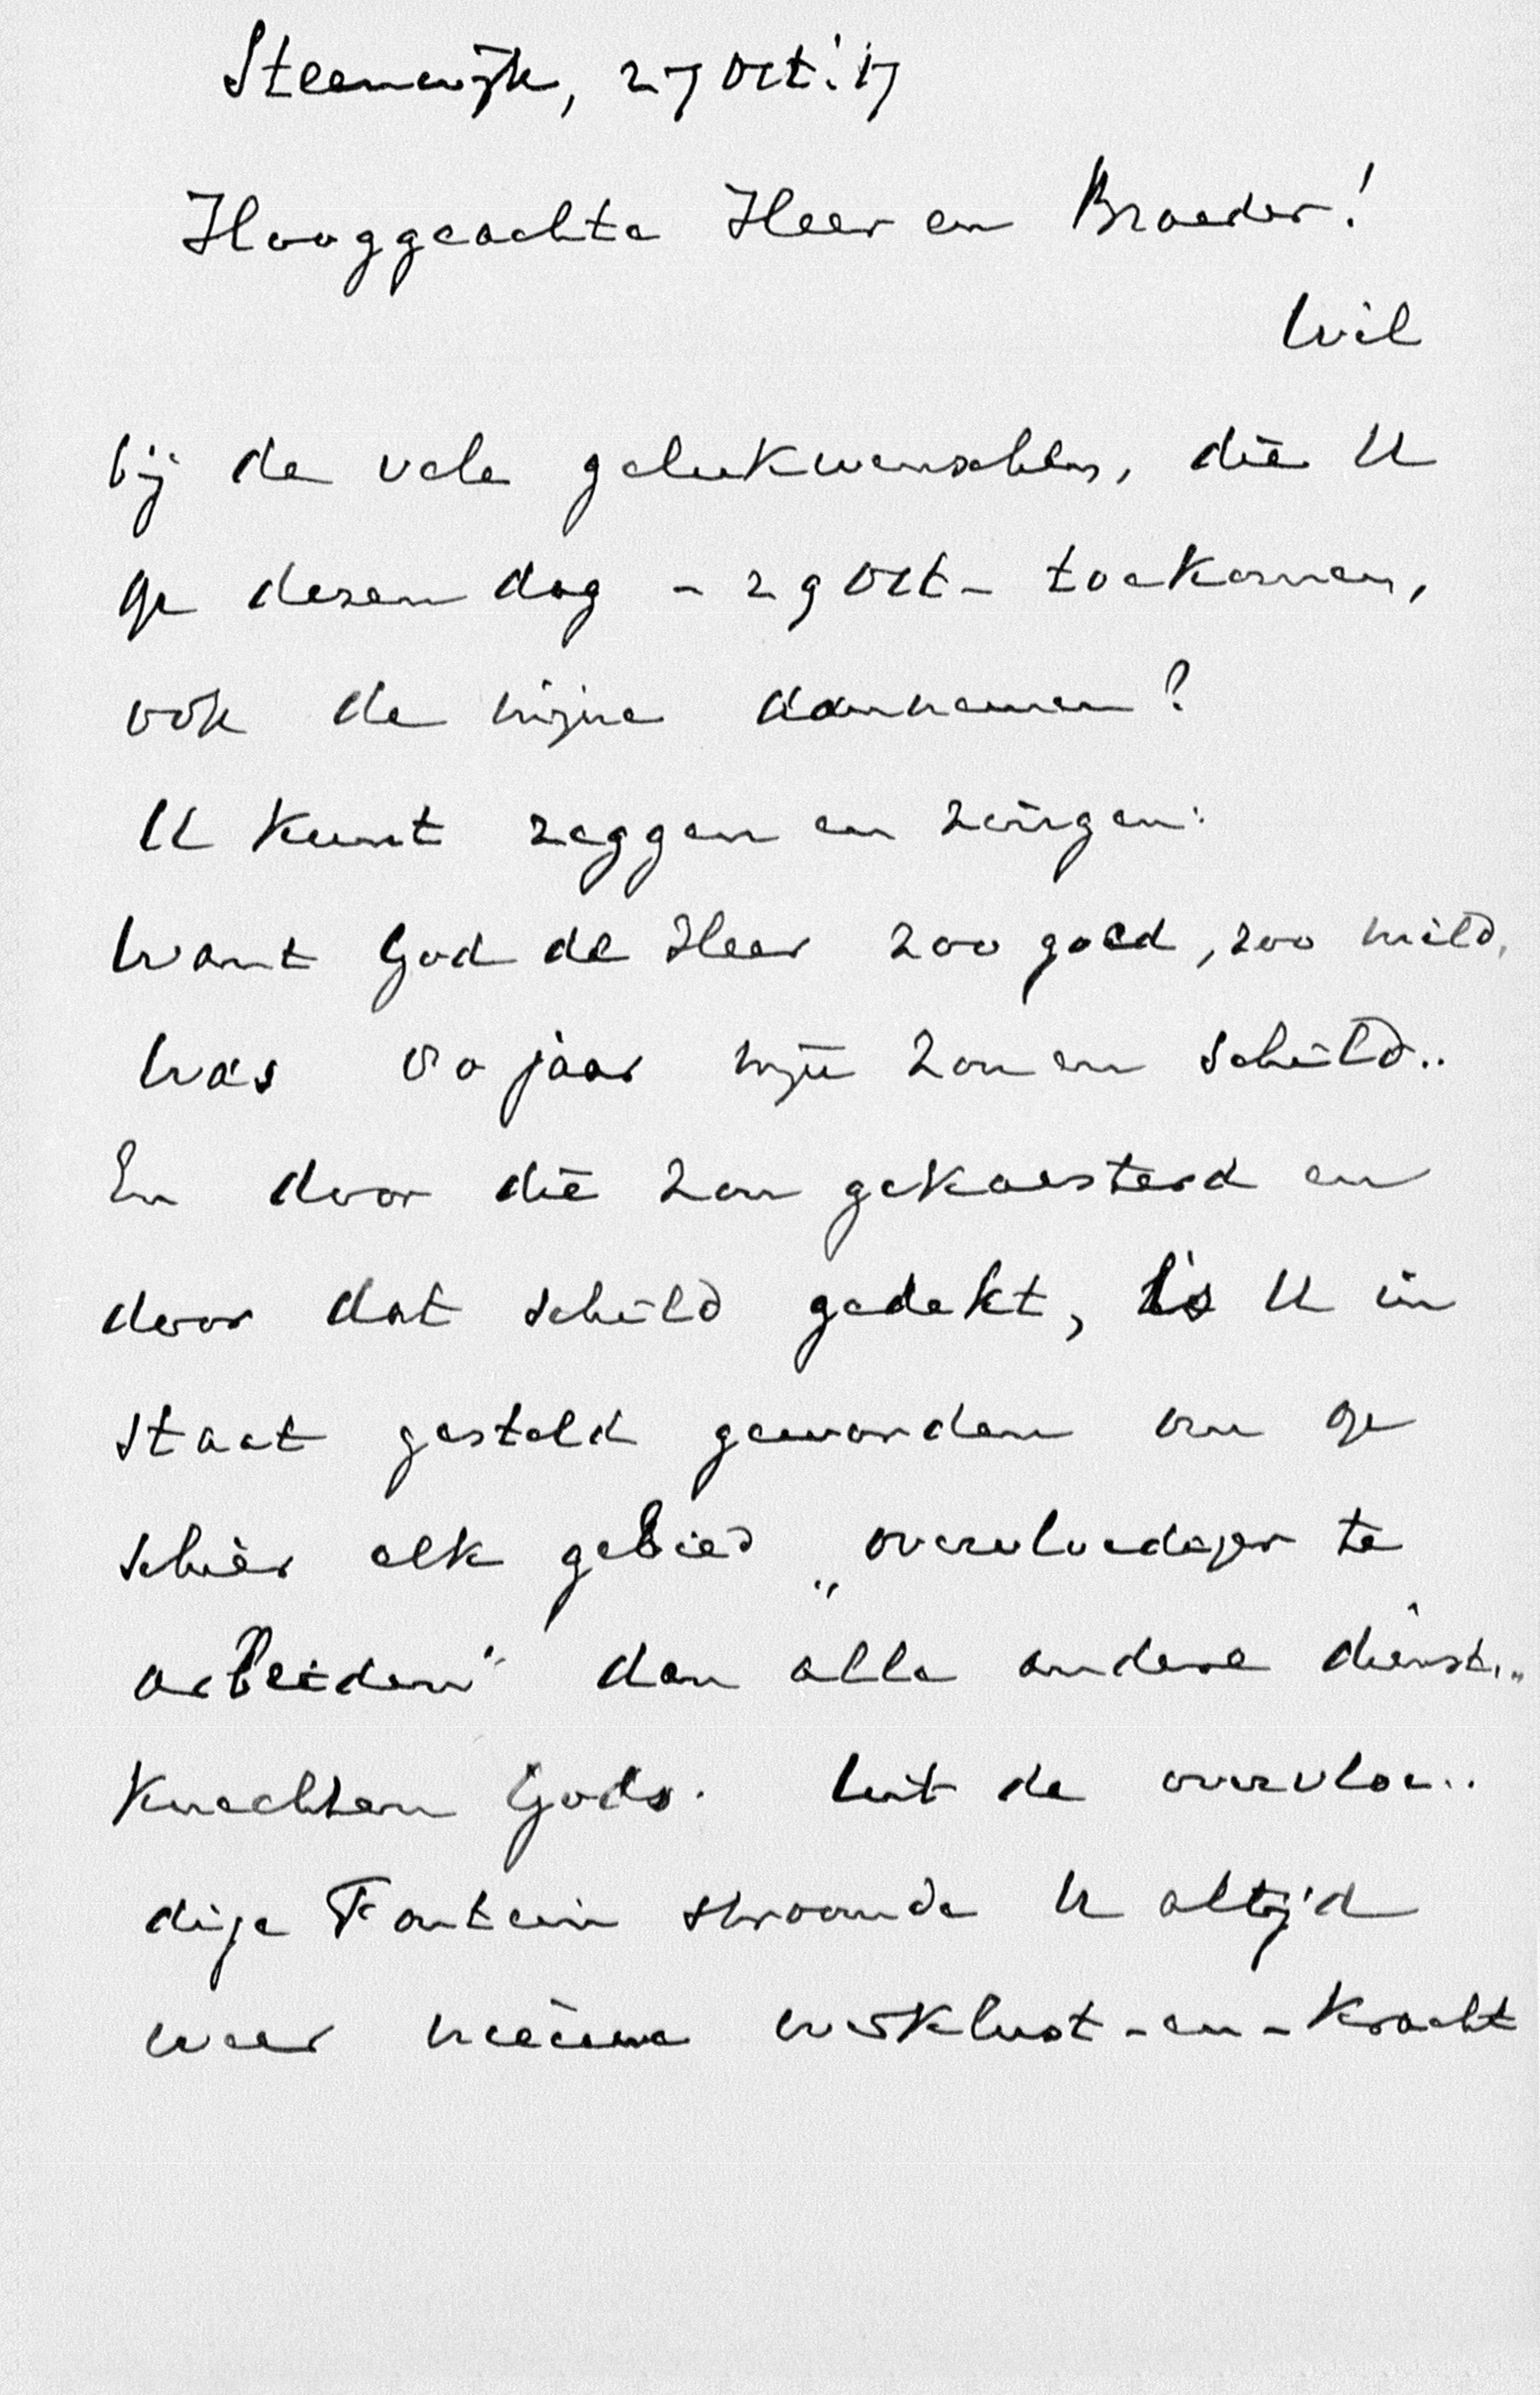 Steenwijk, 27 Oct. '17
Hooggeachte Heer en Broeder!
Wil
bij de vele gelukwenschen, die U
op dezen dag - 29 Oct - toekomen,
ook de mijne aannemen?
U kunt zeggen en zingen:
Want God de Heer zoo goed, zoo mild,
Was 80 jaar mijn zon en schild..
En door die zon gekoesterd en
door dat schild gedekt, is U in
staat gesteld geworden om op
schier elk gebied „overvloediger te
arbeiden" dan alle andere dienst„
knechten Gods. Uit de overvloe..
dige Fontein stroomde U altijd
weer nieuwe werklust-en-kracht